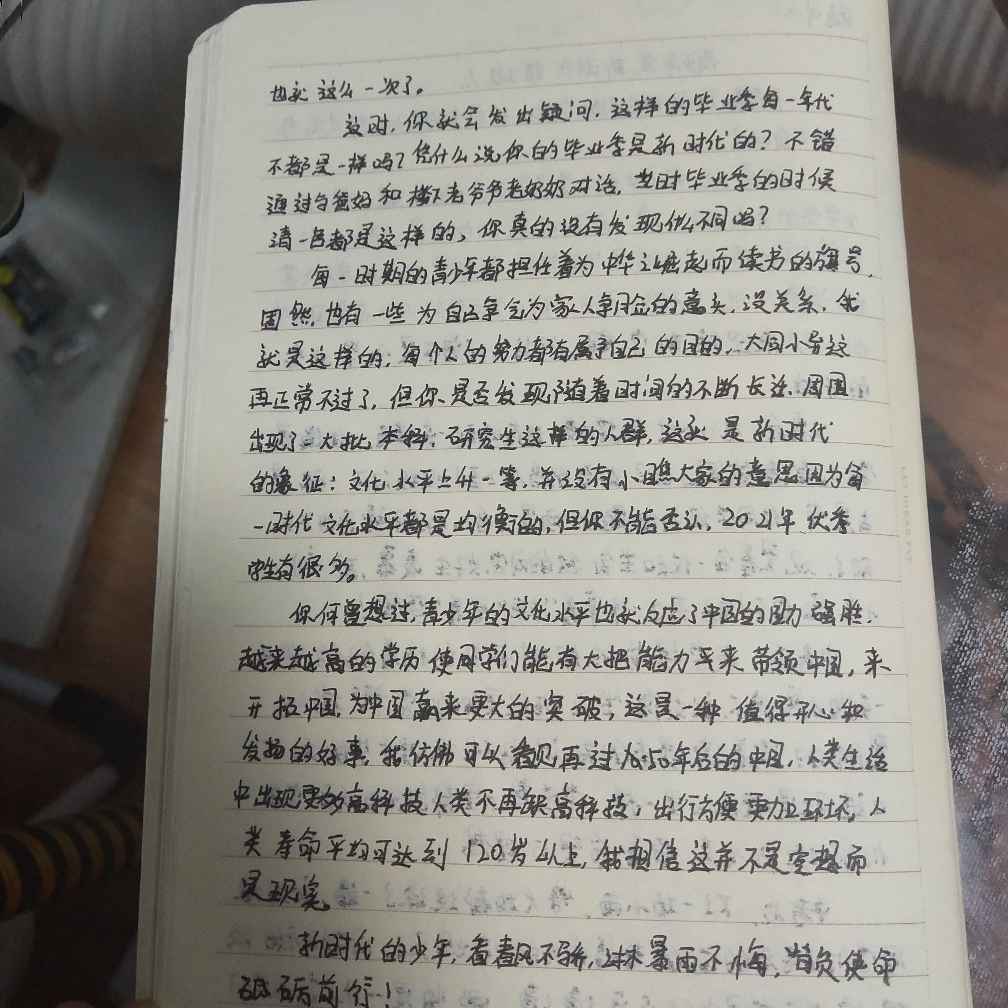 也就这么一次了。
这时,你就会发出疑问,这样的毕业季每一年代
不都是一样吗?凭什么说你的毕业季是新时代的?不错
通过与爸妈和楼下老爷爷老奶奶对话,当时毕业季的时候
清一色都是这样的,你真的没有发现什么不同吗?
每一时期的青少年都担任着为中华之崛起而读书的旗号,
固然,也有一些为自己争气为家人争脸的意头,没关系,我
就是这样的,每个人的努力都有属于自己的目的,大同小异这
再正常不过了,但你是否发现随着时间的不断长逝,周围
出现了一大批本科、研究生这样的人群,这就是新时代
的象征:文化水平上升一等,并没有小瞧大家的意思因为每
一时代文化水平都是均衡的,但你不能否认,2021年优秀
学生有很多。
你何曾想过,青少年的文化水平也就反应了中国的国力强胜,
越来越高的学历使同学们能有大把能力来带领中国,来
开拓中国,为中国赢来更大的突破,这是一种值得开心和
发扬的好事,我仿佛可以看见再过50年后的中国,人类生活
中出现更多高科技人类不再缺高科技,出行方便更加环保,人
类寿命平均可达到120岁以上,我相信这并不是空想而
是现实。
新时代的少年,看春风不骄,沐暴雨不悔,肩负使命
砥砺前行!